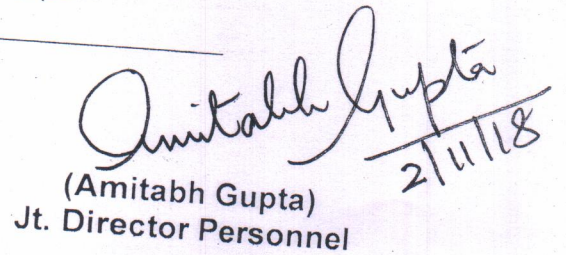 Amitabh Gupta
2/11/18
(Amitabh Gupta)
Jt. Director Personnel